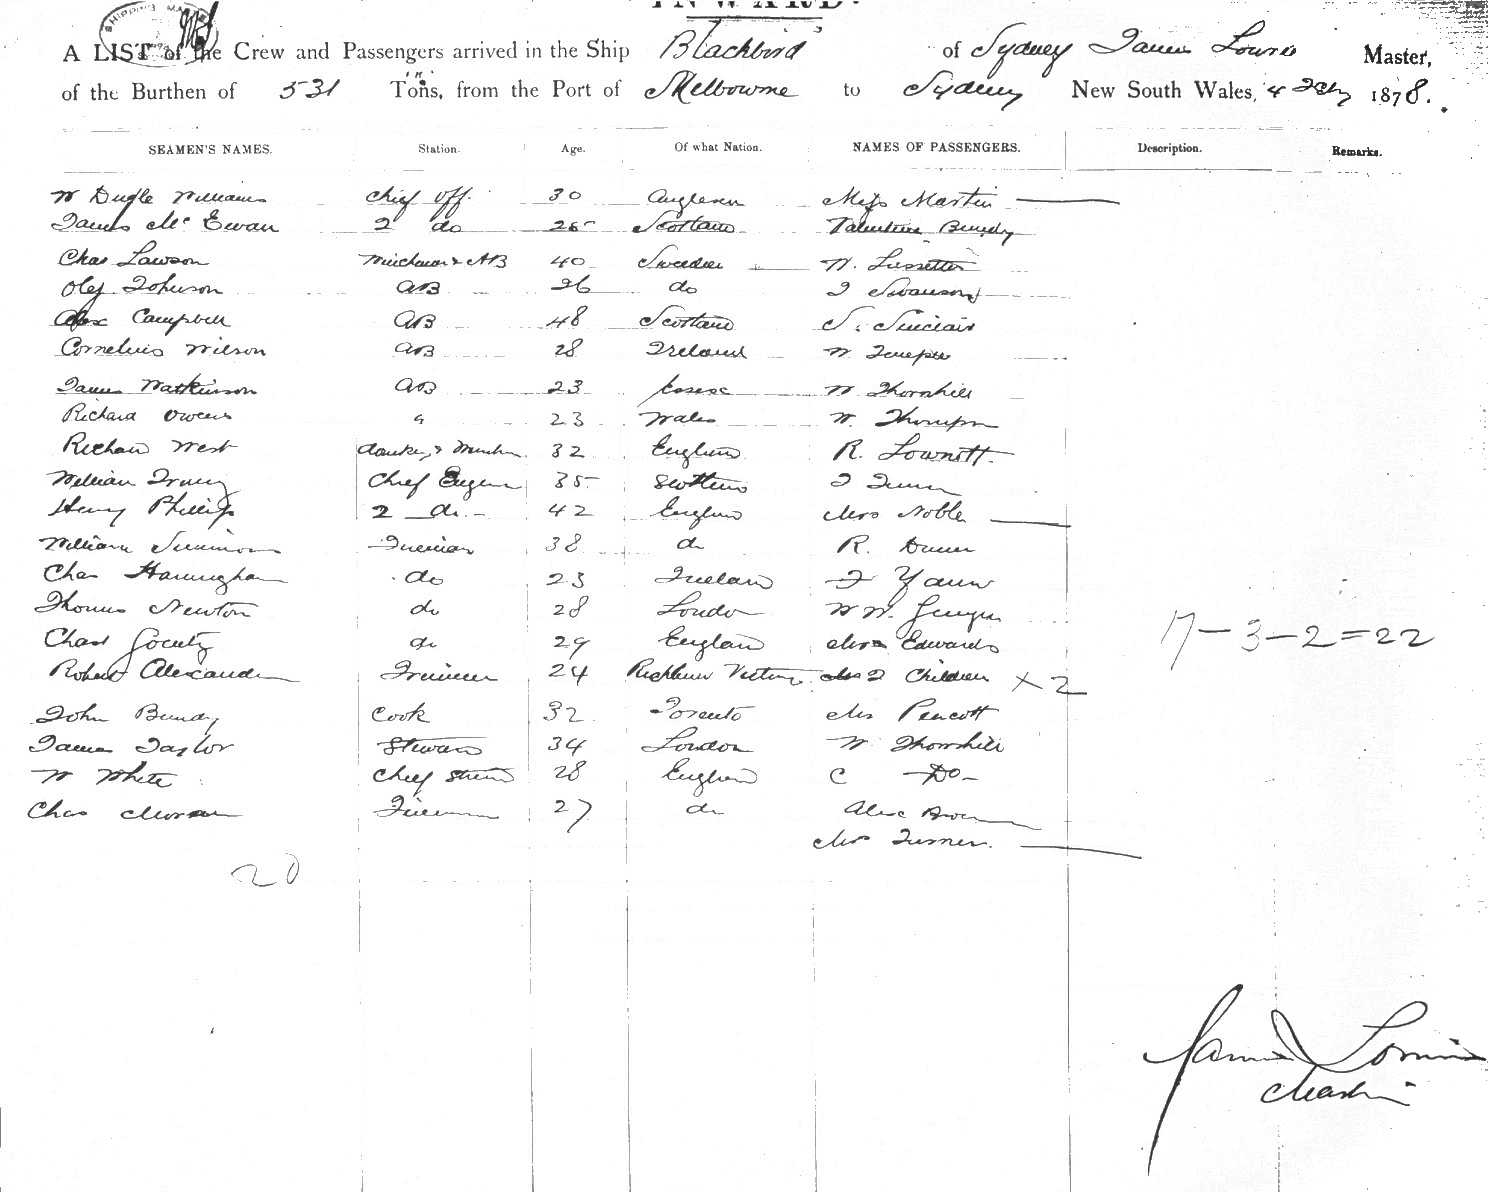 INWARD.
SHIPPING MASTER
A LIST of the Crew and Passengers arrived in the Ship "Blackbird" of Sydney James Lowrie Master,
of the Burthen of 531 Tons, from the Port of Melbourne to Sydney New South Wales, 4 Feby 1878.
SEAMEN'S NAMES. Station. Age. Of what Nation. NAMES OF PASSENGERS. Description. Remarks.
W Williams Chief Off. 30 Anglesea Miss Martin
James McEwan 2 do 25 Scotland
Chas Lawson & AB 40 Sweden W.
Johnson AB 26 do J Swanson
Alex Campbell AB 48 Scotland S. Sinclair
Cornelius Wilson AB 28 Ireland W
James Watkinson AB 23 Essex W Thornhill
Richard Owens " 23 Wales W. Thompson
Richard West 32 England R.
William Chief Engineer 35 Scotland J
Henry Phillips 2 do. 42 England Mrs Noble
William Simmons Fireman 38 do R.
Chas do 23 Ireland J Young
Thomas Newton do 28 London W W.
Chas do 29 England Mrs Edwards
Robert Alexander Trimmer 24 2 Children × 2
John Bundy Cook 32 Toronto Mrs
James Taylor Steward 34 London W Thornhill
W White Chief 28 England C Do
Chas Moran Fireman 27 do Alex
Mrs Turner.
20
17 - 3 - 2 = 22
James Lowrie
Master